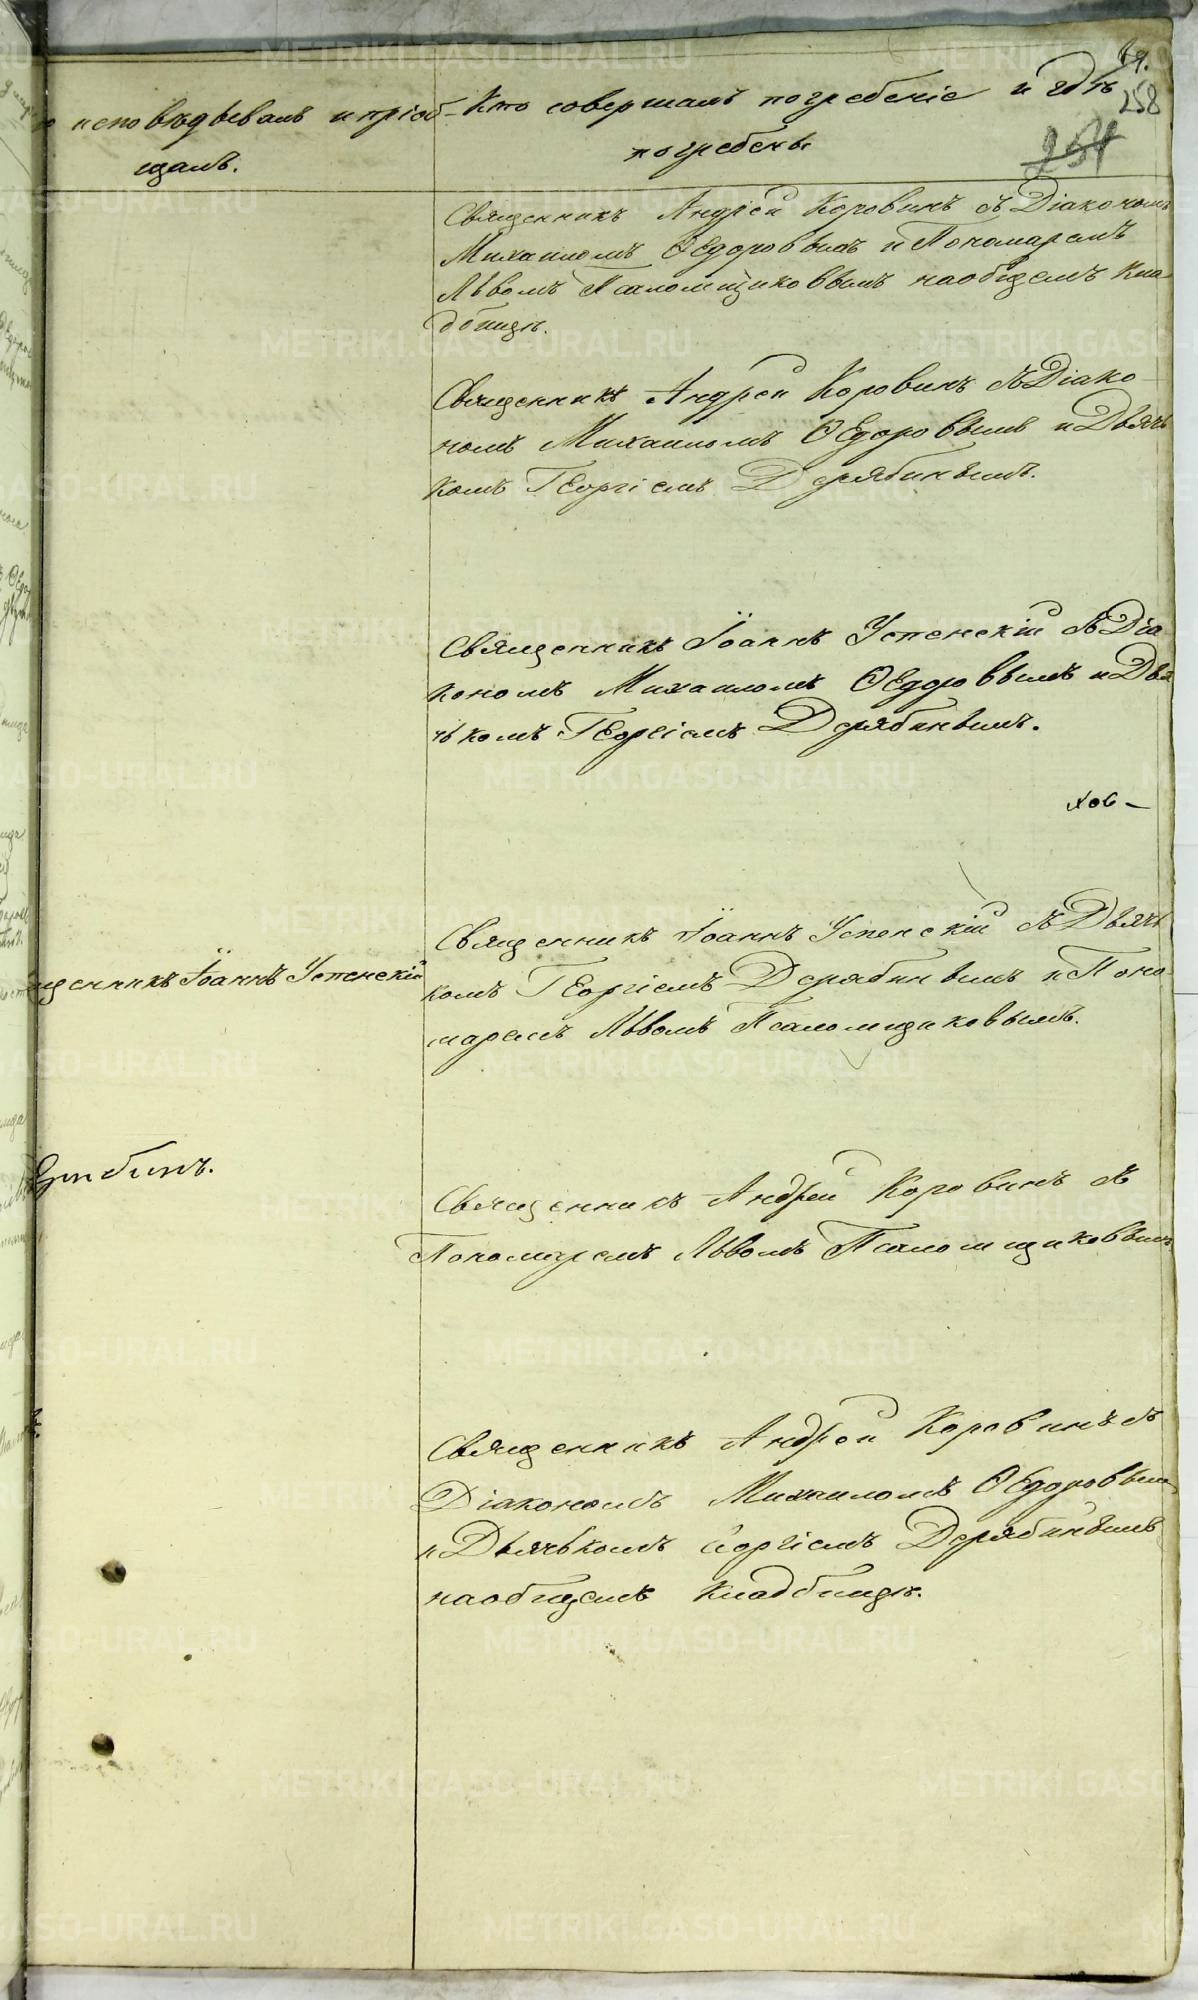 69.
258
251
исповѣдывалъ и пріоб-
щалъ.
Кто совершалъ погребеніе и гдѣ
погребены
Священникъ Андрей Коровинъ съ Діакономъ
Михаиломъ Ѳедоровымъ и Пономаремъ
Львомъ Псаломщиковымъ на общемъ кла
дбищѣ.
Священникъ Андрей Коровинъ съ Діако
номъ Михаиломъ Ѳедоровымъ и Дьячь
комъ Георгіемъ Дерябинымъ.
Священникъ Іоаннъ Успенскій съ Діа
кономъ Михаиломъ Ѳедоровымъ и Дья
чькомъ Георгіемъ Дерябинымъ.
щенникъ Іоаннъ Успенскій
Священникъ Іоаннъ Успенскій съ Дьячь
комъ Георгіемъ Дерябинымъ и Поно
маремъ Львомъ Псаломщиковымъ.
Священникъ Андрей Коровинъ съ
Пономаремъ Львомъ Псаломщиковымъ
Священникъ Андрей Коровинъ съ
Діакономъ Михаиломъ Ѳедоровым
и Дьячькомъ Георгіемъ Дерябинымъ
на общемъ кладбищѣ.
METRIKI.GASO-URAL.RU